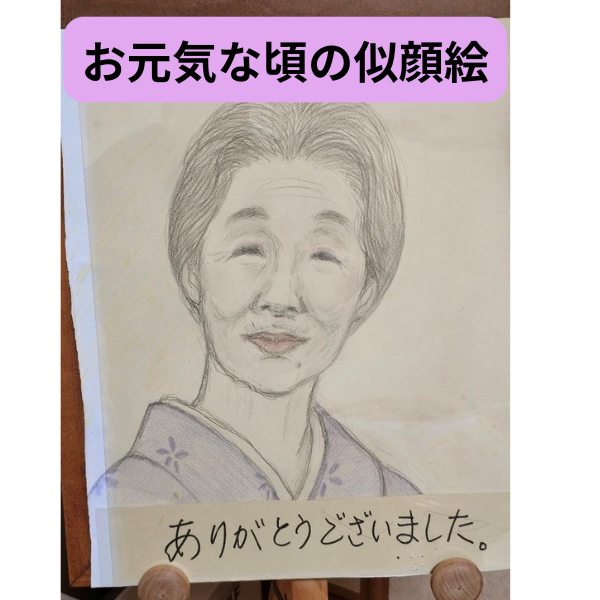 お元気な頃の似顔絵
ありがとうございました。